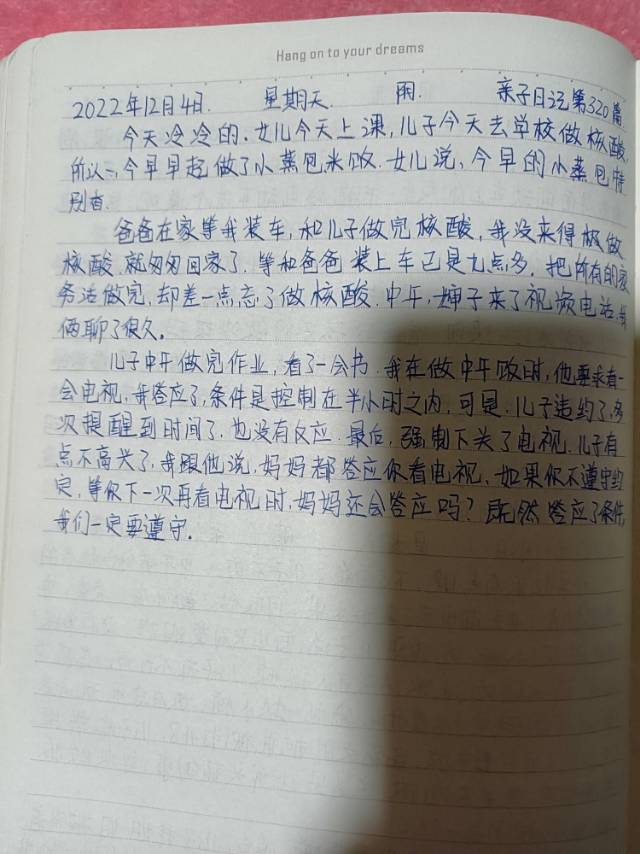 Hang on to your dreams
2022年12月4日. 星期天. 雨. 亲子日记第320篇
今天冷冷的.女儿今天上课,儿子今天去学校做核酸,
所以,今早早起做了小蒸包米饭.女儿说,今早的小蒸包特
别香.
爸爸在家等我装车,和儿子做完核酸,我没来得极做
核酸.就匆匆回家了.等和爸爸装上车已是九点多.把所有的家
务活做完,却差一点忘了做核酸.中午,婶子来了视频电话,我
俩聊了很久。
儿子中午做完作业,看了一会书.我在做中午饭时,他要求看一
会电视,我答应了,条件是控制在半小时之内,可是.儿子违约了,多
次提醒到时间了.也没有反应.最后,强制下关了电视.儿子有
点不高兴了,我跟他说,妈妈都答应你看电视,如果你不遵守约
定,等你下一次再看电视时,妈妈还会答应吗?既然答应了条件,
我们一定要遵守.